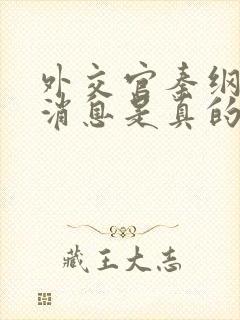 外交官秦纲
消息是真的
藏王大志